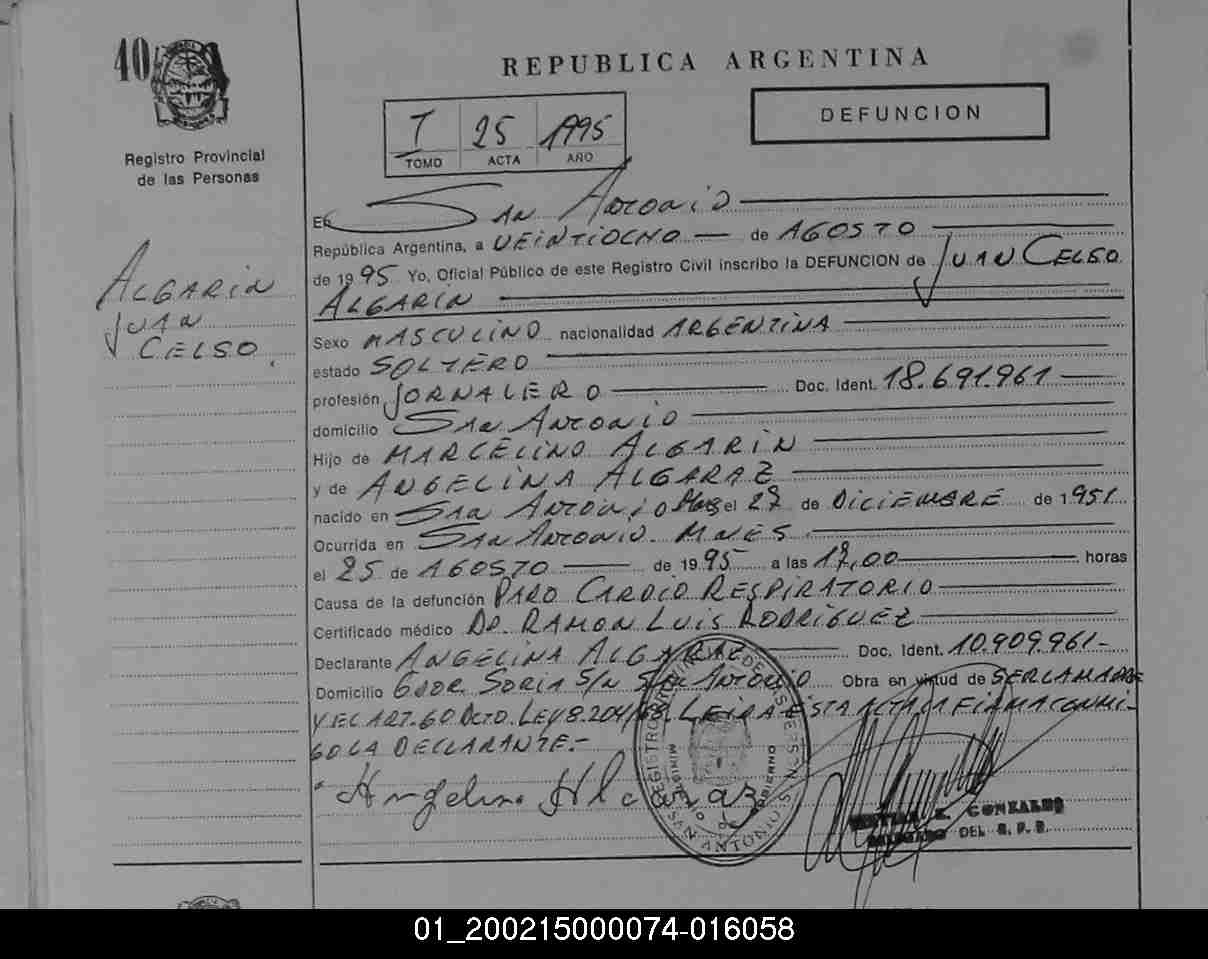 40
Registro Provincial
de las Personas
ALGARIN
JUAN
CELSO.
REPUBLICA ARGENTINA
I 25 1995
TOMO ACTA AÑO
DEFUNCION
En SAN ANTONIO
República Argentina, a VEINTIOCHO de AGOSTO
de 1995 Yo, Oficial Público de este Registro Civil inscribo la DEFUNCION de JUAN CELSO
ALGARIN
Sexo MASCULINO nacionalidad ARGENTINA
estado SOLTERO
profesión JORNALERO Doc. Ident. 18.691.961
domicilio SAN ANTONIO
Hijo de MARCELINO ALGARIN
y de ANGELINA ALGARAZ
nacido en SAN ANTONIO el 27 de DICIEMBRE de 1951
Ocurrida en SAN ANTONIO. MNES.
el 25 de AGOSTO de 1995 a las 17,00 horas
Causa de la defunción PARO CARDIO RESPIRATORIO
Certificado médico DR. RAMON LUIS RODRIGUEZ
Declarante ANGELINA ALGARAZ Doc. Ident. 10.909.961-
Domicilio GDOR. SORIA S/N SAN ANTONIO Obra en virtud de SER LA MADRE
Y EL ART. 60 DCTO. LEY 8.204/ LEIDA ESTA ACTA LA FIRMA CONMI-
GO LA DECLARANTE.-
Angelina Algaraz
REGISTRO PROVINCIAL DE LAS PERSONAS
SAN ANTONIO
GONZALEZ
DELEGADO DEL R. P. P.
01_200215000074-016058